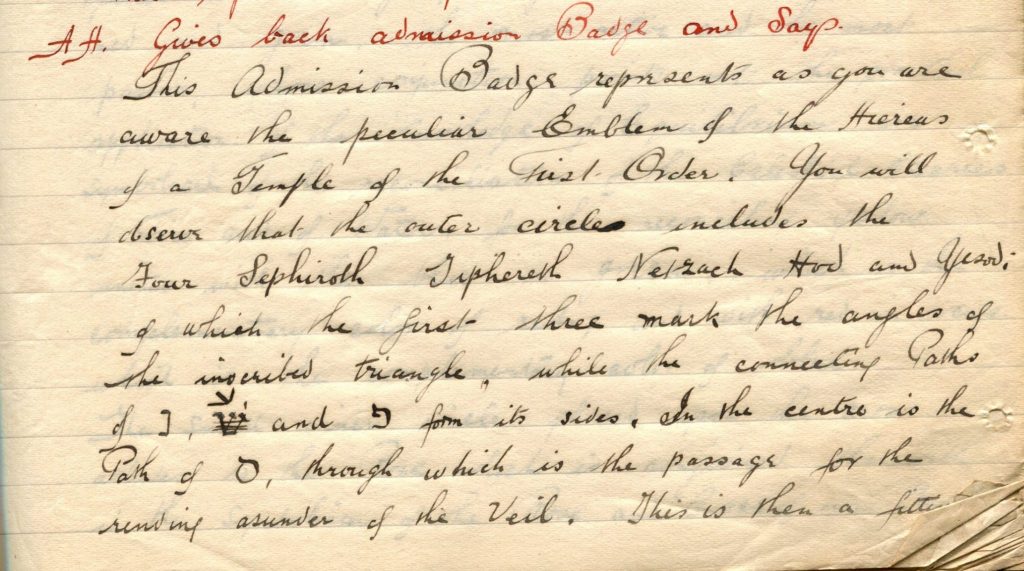 AH. Gives back admission Badge and Says.
This Admission Badge represents as you are
aware the peculiar Emblem of the Hiereus
of a Temple of the First Order. You will
observe that the outer circle includes the
Four Sephiroth Tiphereth Netzach Hod and Yesod;
of which the first three mark the angles of
the inscribed triangle, while the connecting Paths
of נ, ע and פ form its sides. In the centre is the
Path of ס, through which is the passage for the
rending asunder of the Veil. This is then a